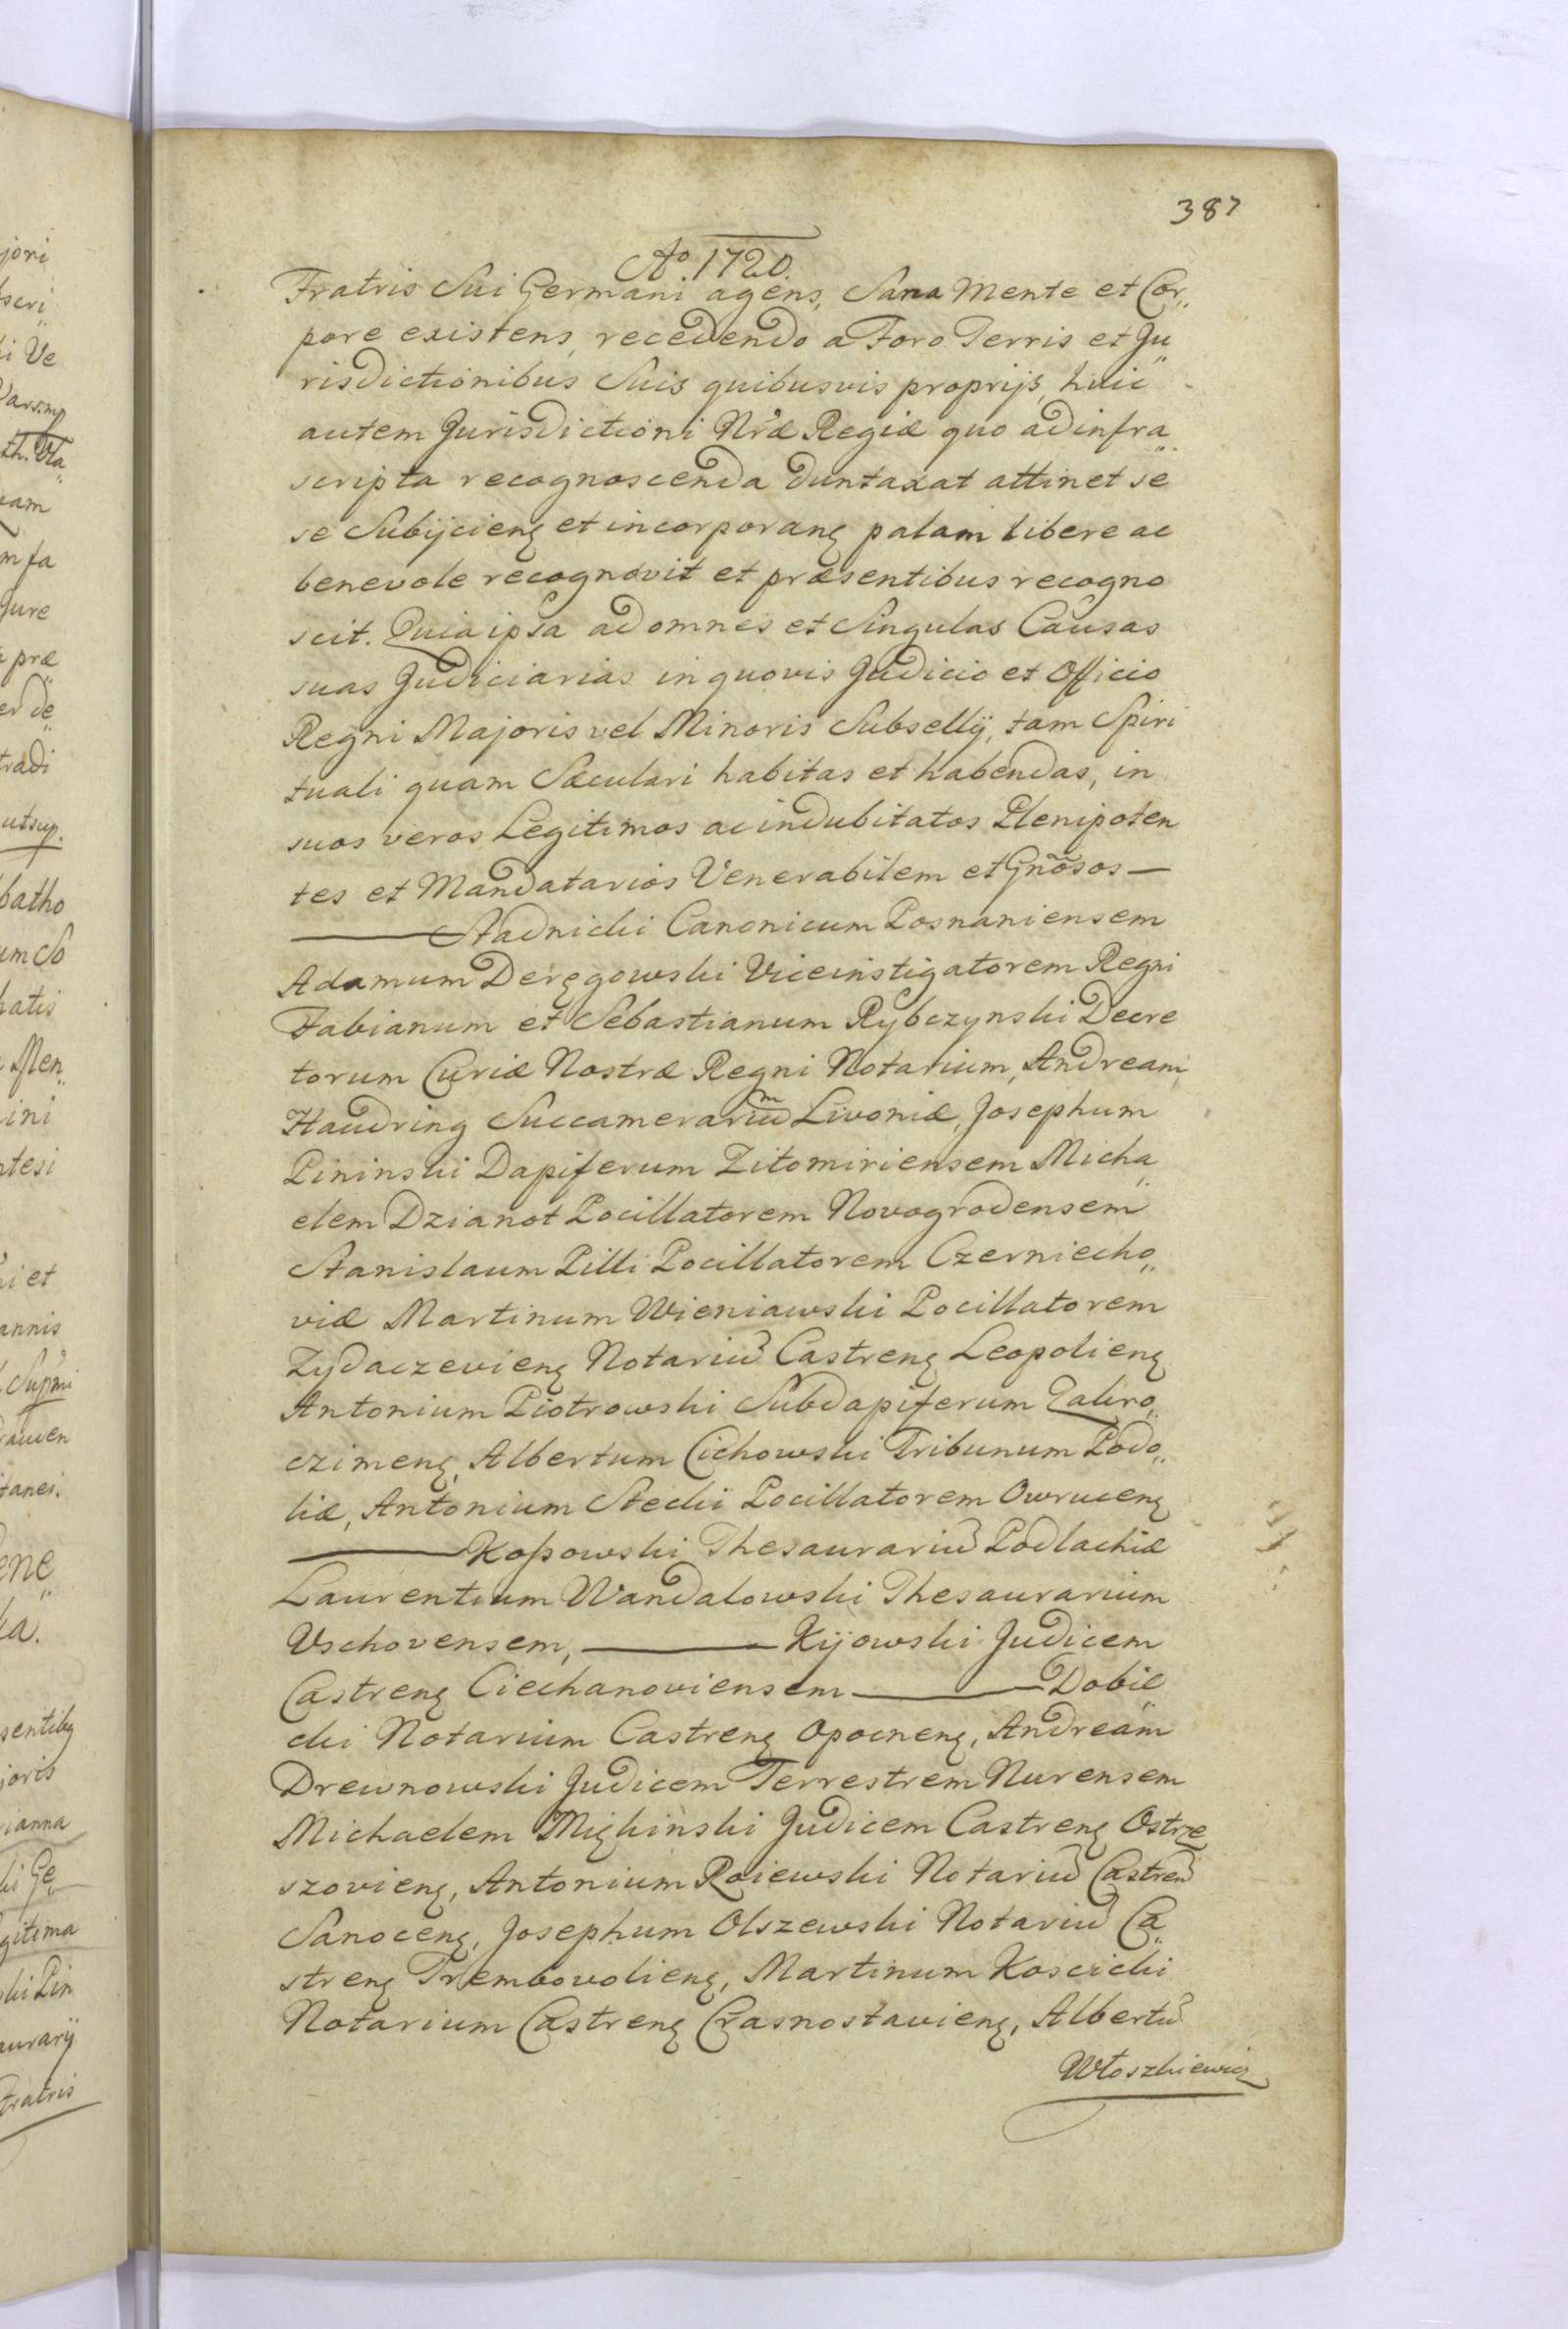 387
Ao. 1720.
Fratris Sui Germani agens, Sana Mente et Cor„
pore existens, recedendo a Foro Terris et Ju„
risdictionibus Suis quibusvis proprijs, huic
autem Jurisdictioni Nræ Regiæ quo ad infra„
scripta recognoscenda duntaxat attinet se
se Subijcienȝ et incorporanȝ palam libere ac
benevole recognovit et præsentibus recogno
scit. Quia ipsa ad omnes et Singulas Causas
suas Judiciarias in quovis Judicio et Officio
Regni Majoris vel Minoris Subsellij, tam Spiri
tuali quam Sæculari habitas et habendas, in
suos veros Legitimos ac indubitatos Plenipoten
tes et Mandatarios Venerabilem et Gnõsos —
—— Stadnicki Canonicum Posnaniensem
Adamum Deręgowski Viceinstigatorem Regni
Fabianum et Sebastianum Rybczynski Decre
torum Curiæ Nostræ Regni Notarium, Andream
Haudring Succamerariũm Livoniæ, Josephum
Pininski Dapiferum Zitomiriensem Micha„
elem Dzianot Pocillatorem Novogrodensem
Stanislaum Pilli Pocillatorem Czerniecho„
viæ Martinum Wieniawski Pocillatorem
Zydaczevienȝ Notariũ Castrenȝ Leopolienȝ
Antonium Piotrowski Subdapiferum Zakro„
czimenȝ, Albertum Cichowski Tribunum Podo„
liæ, Antonium Stecki Pocillatorem Owrucenȝ
—— Koßowski Thesaurariũ Podlachiæ
Laurentium Wandalowski Thesaurarium
Vschovensem, —— Kijowski Judicem
Castrenȝ Ciechanoviensem —— Dobie„
cki Notarium Castrenȝ Opocnenȝ, Andream
Drewnowski Judicem Terrestrem Nurensem
Michaelem Judicem Castrenȝ Ostrze
szovienȝ, Antonium Roiewski Notariũ Castreñ
Sanocenȝ, Josephum Olszewski Notariũ Ca„
strenȝ Trembovolienȝ, Martinum Koscicki
Notarium Castrenȝ Crasnostavienȝ, Albertũ
Włoszkiewicz